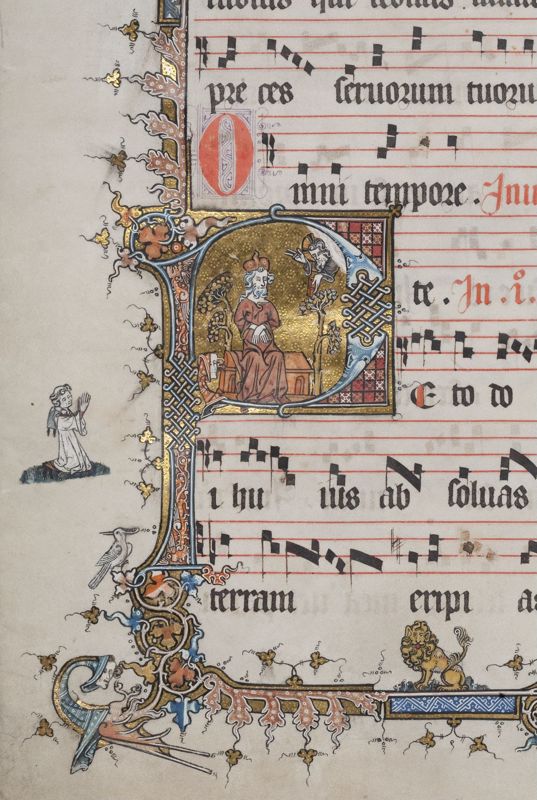 pre ces seruorum tuoru
O mni tempore. Inu
P te. In .i°.
E to do
i hu ius ab soluas
terram eripi a